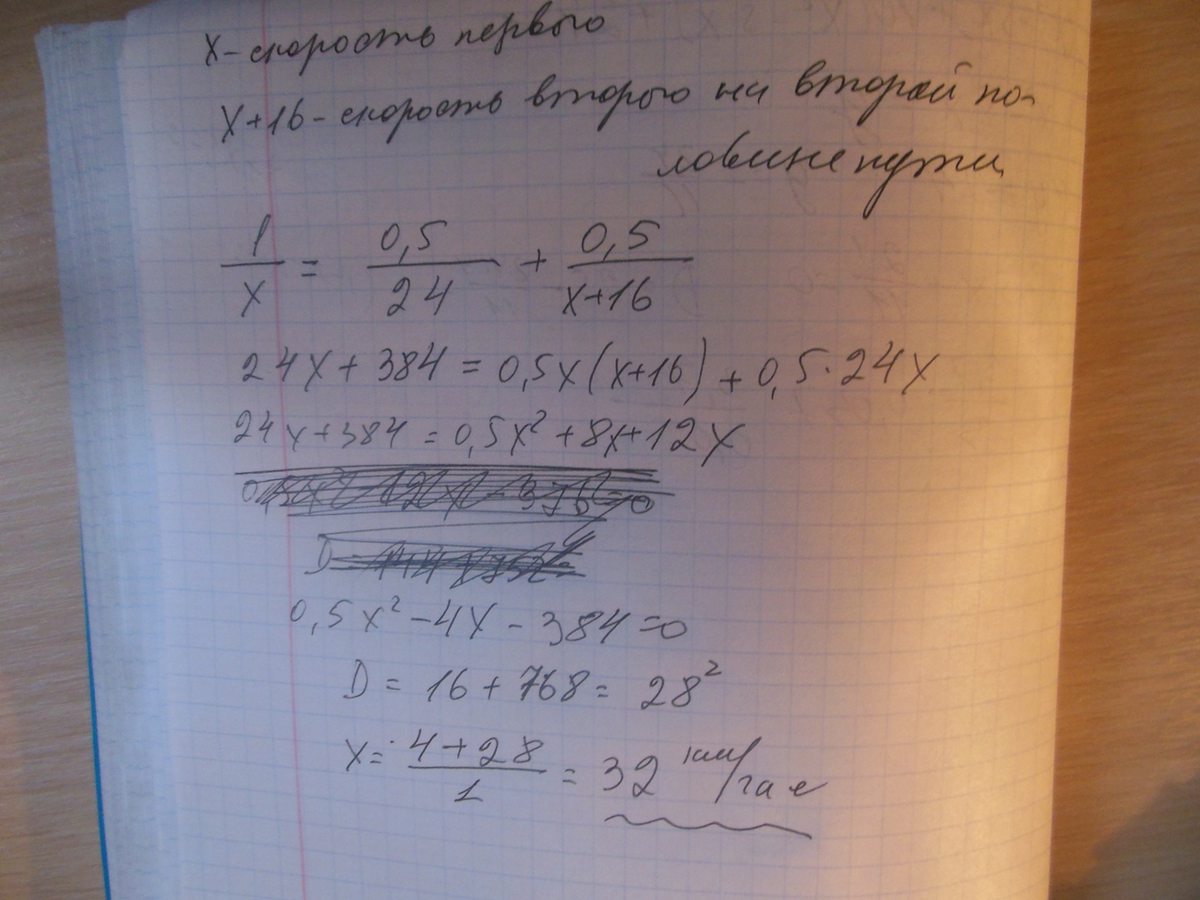 х - скорость первого
х+16 - скорость второго на второй по-
ловине пути
1/х = 0,5/24 + 0,5/х+16
24х + 384 = 0,5х(х+16) + 0,5·24х
24х+384 = 0,5х² + 8х+12х
0,5х² - 4х - 384 = 0
D = 16 + 768 = 28²
х = 4+28/1 = 32 км/час